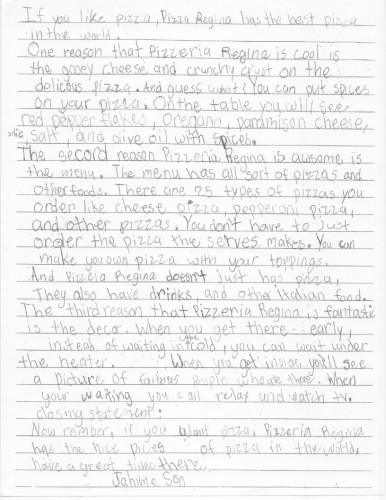 If you like pizza, Pizza Regina has the best pizza
in the world.
One reason that Pizzeria Regina is cool is
the gooey cheese and crunchy crust on the
delicous pizza. And guess what? You can put spices
on your pizza. On the table you will see
red pepper flakes, Oregano, paramison cheese,
salt, and olive oil with spices.
The second reason Pizzeria Regina is awsome is
the menu. The menu has all sort of pizzas and
other foods. There are 25 types of pizzas you
order like cheese pizza, pepperoni pizza,
and other pizzas. You don't have to just
order the pizza the serves makes. You can
make you own pizza with your toppings.
And Pizzeia Regina doesn't just has pizza,
They also have drinks, and other Italian food.
The third reason that Pizzeria Regina is fantastic
is the decor. When you get there early,
instead of waiting in the cold, you can wait under
the heater. When you get inside you'll see
a picture of people who ate there. When
your waiting you can relax and watch tv.
closing statement:
Now rember, if you want pizza, Pizzeria Regina
has the of pizza in the world,
have a great time there.